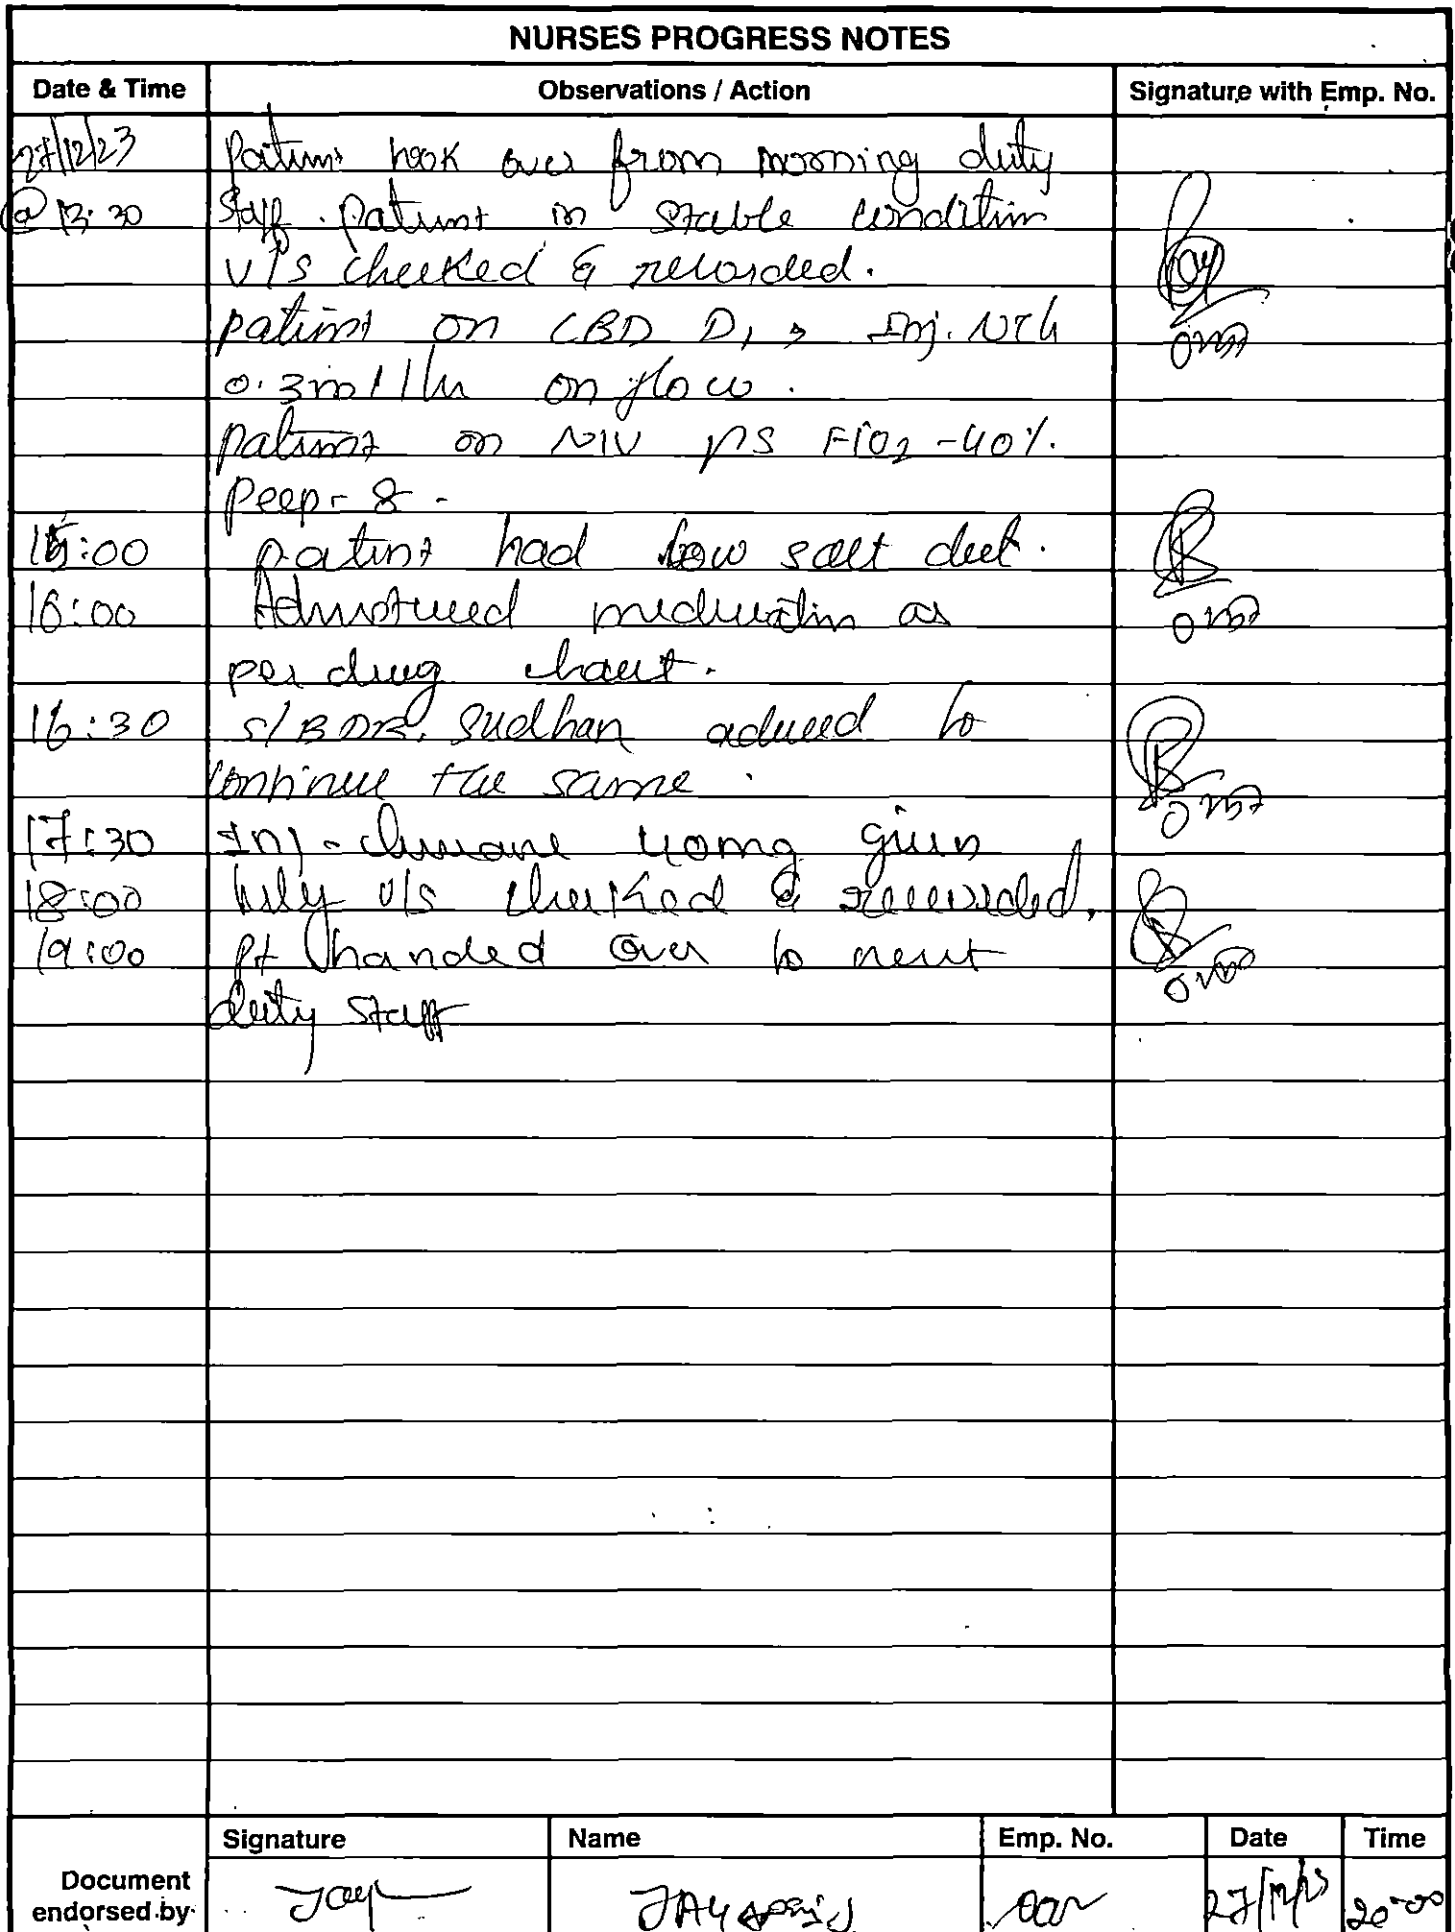 NURSES PROGRESS NOTES
Date & Time Observations / Action Signature with Emp. No.
27/12/23 Patient took over from morning duty
@ 13:30 Staff. Patient in stable condition
V/S checked & recorded.
patient on CBD D1, Inj. NTG
0.3ml/hr on flow.
patient on NIV PS FiO2 -40%.
Peep- 8.
15:00 patient had low salt diet.
16:00 Administered medication as
per drug chart.
16:30 S/B DR. Sudhan advised to
continue the same.
17:30 Inj - 40mg given
18:00 hrly v/s checked & recorded.
19:00 Pt handed over to next
duty staff
Signature Name Emp. No. Date Time
Document
endorsed by 27/12/23 20:00